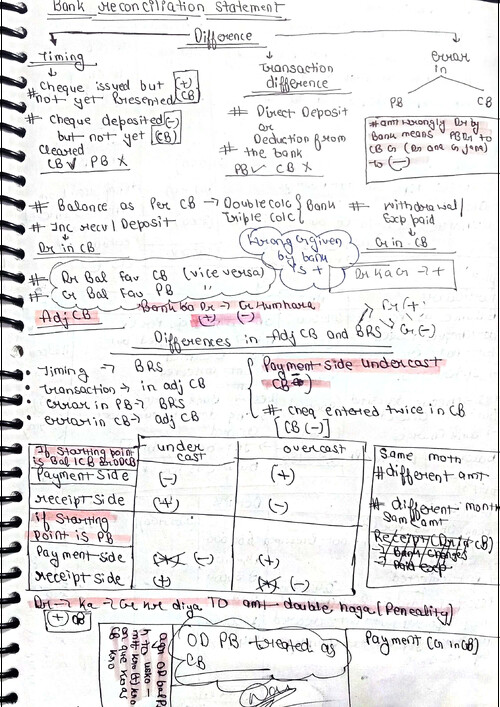 Bank reconciliation statement
Difference
Timing
# Cheque issued but (+)
not yet Presented CB
# cheque deposited (-)
but not yet (CB)
Cleared
CB ✓ PB X
Transaction
difference
# Direct Deposit
or
Deduction from
# the bank
PB ✓ CB X
error
in
PB CB
# amt wrongly Dr by
Bank means PB Dr to
CB Cr
to (-)
# Balance as Per CB → Double colc
Triple colc } Bank
# Inc recv / Deposit
Dr in CB
# withdrawal/
Exp/paid
Cr in CB
Wrong Cr given
by bank
is +
# Dr Bal Fav CB (vice versa)
# Cr Bal Fav PB "
Dr Ka Cr → +
Adj CB
Bank ka Dr → Cr Humhara
(+) (-)
Dr (+)
Cr (-)
Differences in Adj CB and BRS
Timing → BRS
Transaction → in adj CB
error in PB → BRS
error in CB → adj CB
Payment side undercast
CB
# cheq entered twice in CB
[CB (-)]
If Starting point
is Bal
under
cast
overcast
Payment side (-) (+)
receipt side (+) (-)
if Starting
Point is PB
Payment side (-) (+)
receipt side (+) (-)
Same moth
# different amt
# different month
Sam amt
Receipt (Dr in CB)
→ Bank charges
→ Paid exp
Dr → Ka → Cr kr diya TO amt double hoga (Peneality)
(+) CB
OD PB treated as
CB
Payment (Cr in CB)